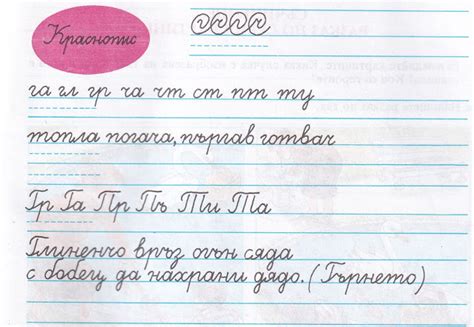 Краснопис
га гл гр ча чт ст пт ту
топла погача, пъргав готвач
Гр Га Пр Пъ Ти Та
Глиненчо връз огън сяда
с бобец да нахрани дядо. (Гърнето)